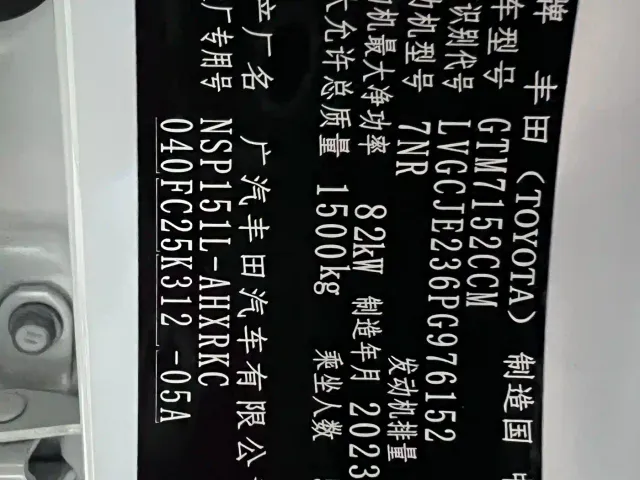 牌 丰田（TOYOTA） 制造国
车型号 GTM7152CCM
识别代号 LVGCJE236PG976152
动机型号 7NR 发动机排量
机最大净功率 82kW 制造年月 2023
大允许总质量 1500kg 乘坐人数
产厂名 广汽丰田汽车有限公
厂专用号 NSP151L-AHXRKC
040FC25K312 -05A